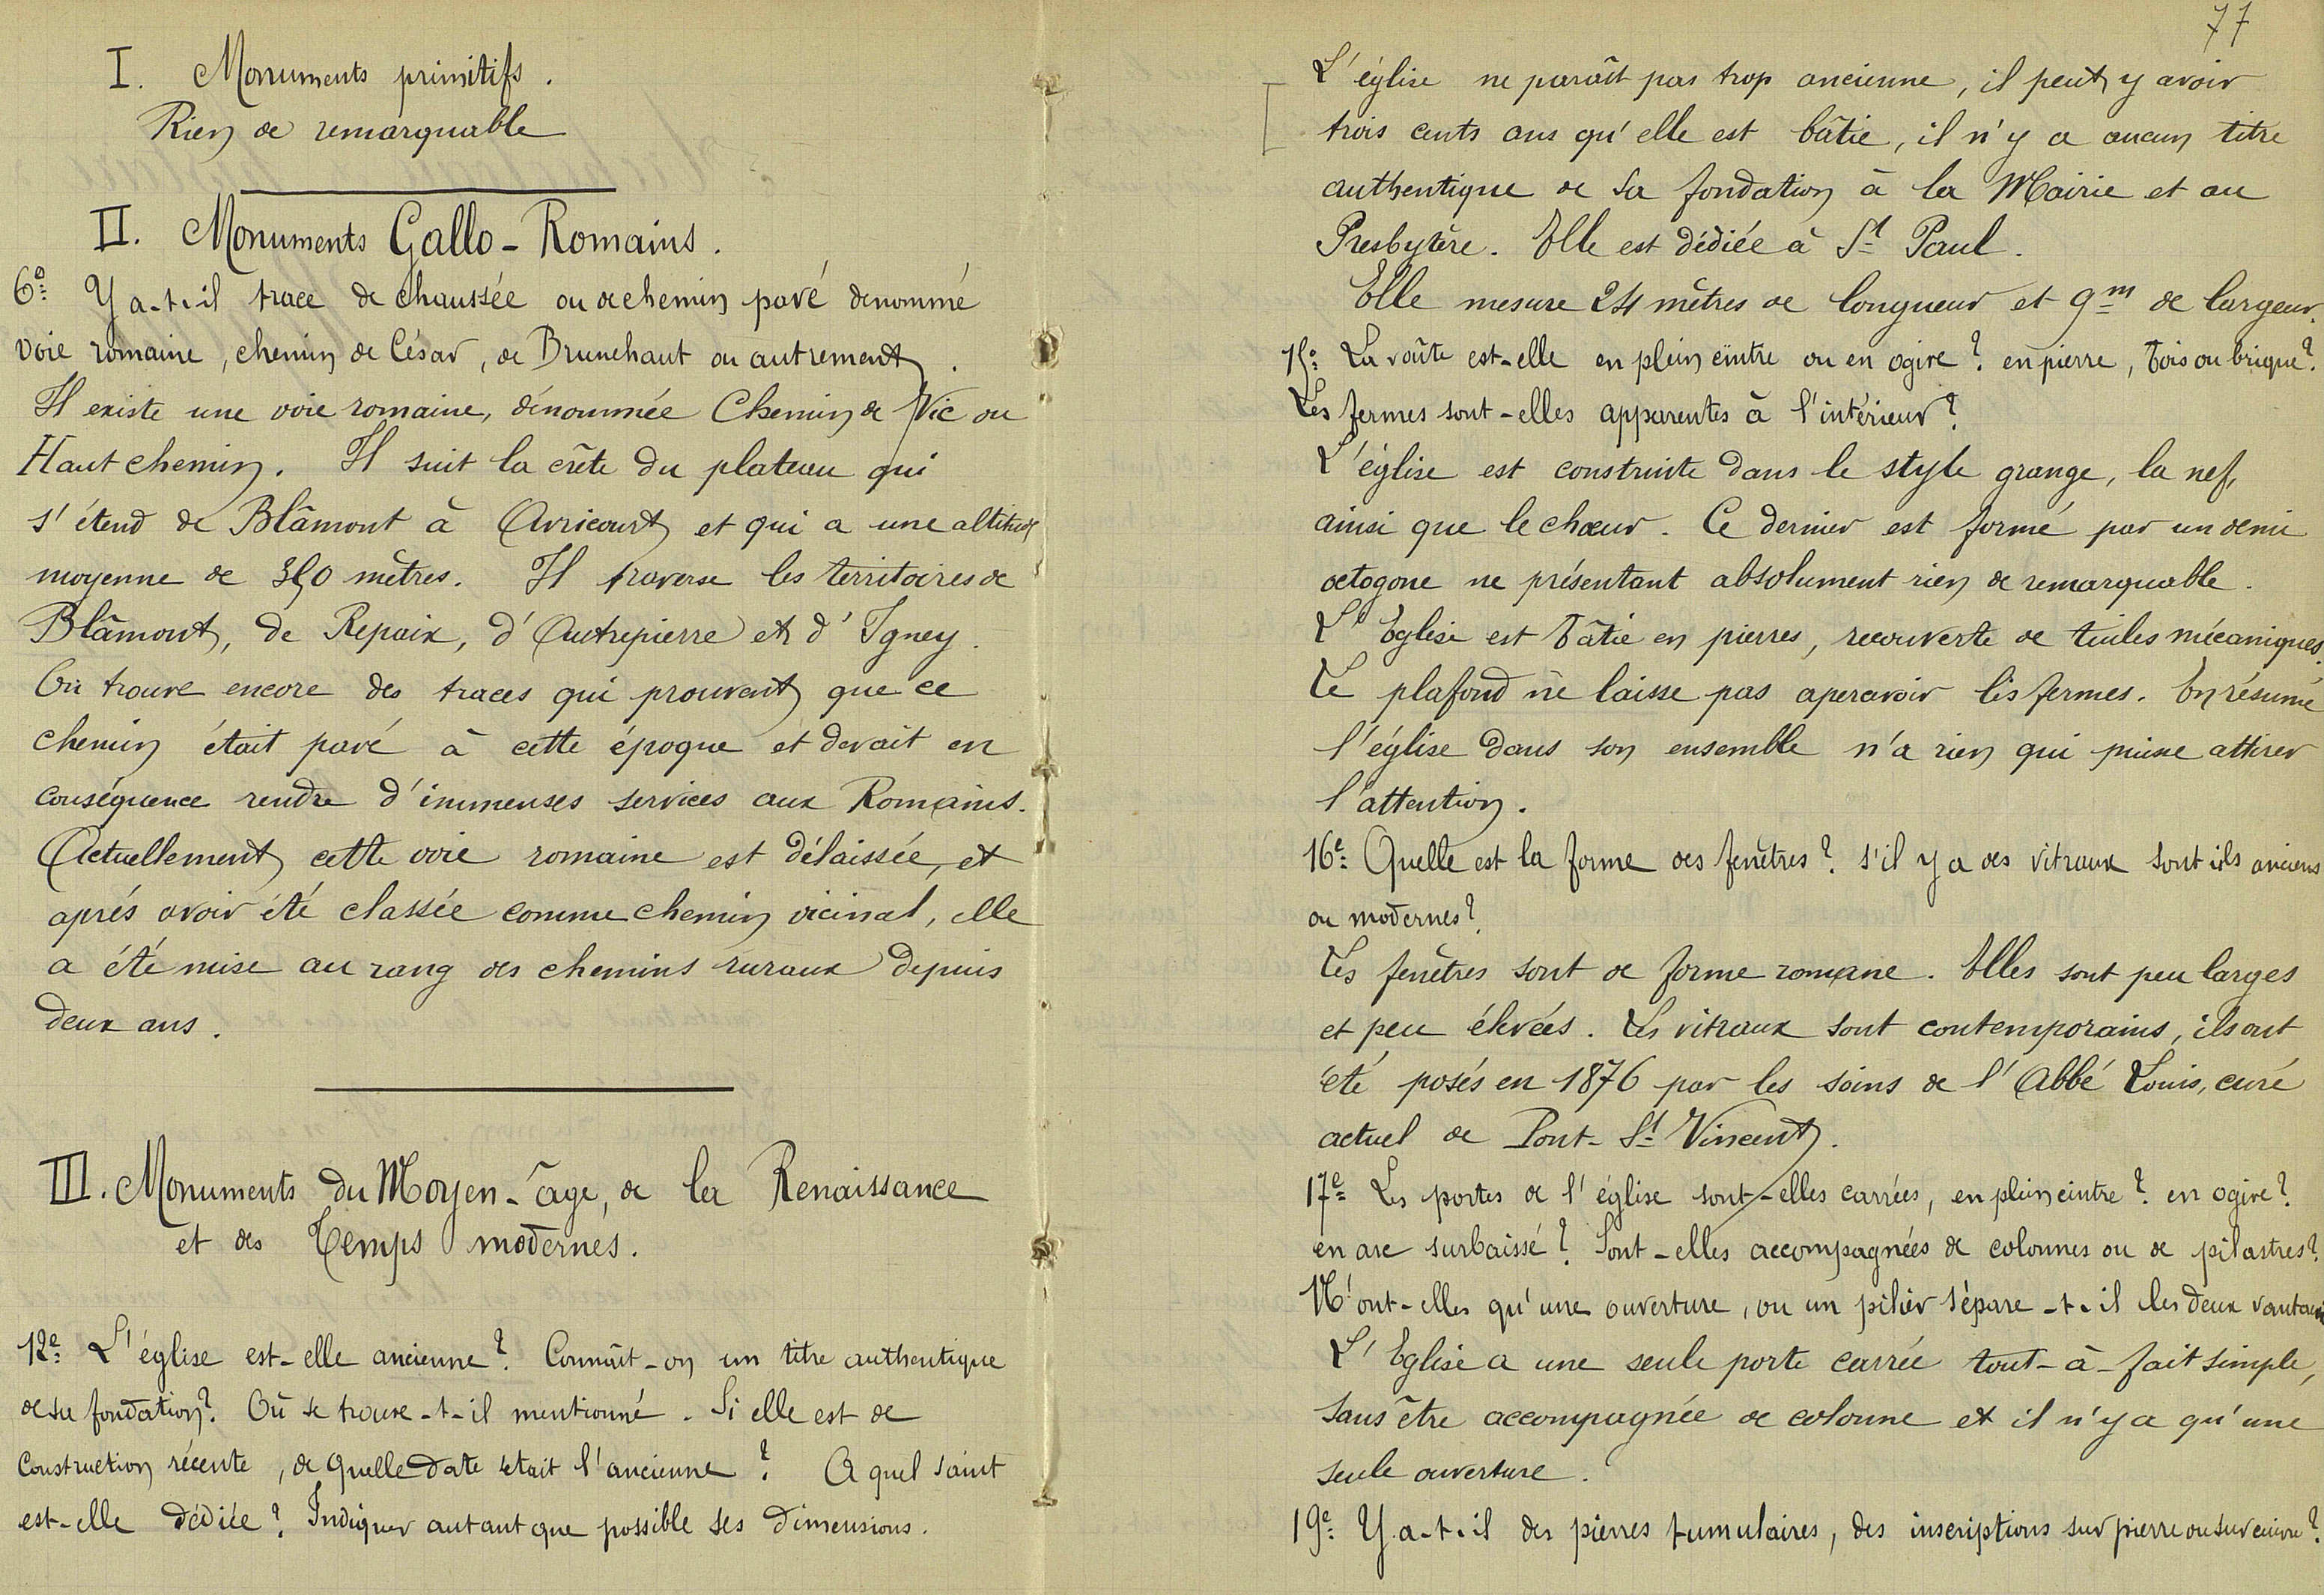 I. Monuments primitifs.
Rien de remarquable
II. Monuments Gallo-Romains.
6º Y a-t-il trace de chaussée ou de chemin pavé dénommé
voie romaine, chemin de César, de Brunehaut ou autrement.
Il existe une voie romaine, dénommée Chemin de Vic ou
Haut chemin. Il suit la crête du plateau qui
s'étend de Blâmont à Avricourt et qui a une altitude
moyenne de mètres. Il traverse les territoires de
Blâmont, de Repaix, d'Autrepierre et d'Igney.
On trouve encore des traces qui prouvent que ce
chemin était pavé à cette époque et devait en
conséquence rendre d'immenses services aux Romains.
Actuellement cette voie romaine est délaissée, et
après avoir été classée comme chemin vicinal, elle
a été mise au rang des chemins ruraux depuis
deux ans.
III. Monuments du Moyen-âge, de la Renaissance
et des Temps modernes.
12e L'église est-elle ancienne? Connaît-on un titre authentique
de sa fondation? Où se trouve-t-il mentionné. Si elle est de
construction récente, de quelle date était l'ancienne? A quel saint
est-elle dédiée? Indiquer autant que possible ses dimensions.
77
L'église ne paraît pas trop ancienne, il peut y avoir
trois cents ans qu'elle est bâtie, il n'y a aucun titre
authentique de sa fondation à la Mairie et au
Presbytère. Elle est dédiée à St Paul.
Elle mesure 24 mètres de longueur et 9m de largeur.
15º La voûte est-elle en plein cintre ou en ogive? en pierre, bois ou brique?
Les fermes sont-elles apparentes à l'intérieur?
L'église est construite dans le style grange, la nef,
ainsi que le chœur. Ce dernier est formé par un demi
octogone ne présentant absolument rien de remarquable.
L'Eglise est bâtie en pierres, recouverte de tuiles mécaniques.
Le plafond ne laisse pas apercevoir les fermes. En résumé
l'église dans son ensemble n'a rien qui puisse attirer
l'attention.
16e Quelle est la forme des fenêtres? s'il y a des vitraux sont ils anciens
ou modernes?
Les fenêtres sont de forme romane. Elles sont peu larges
et peu élevées. Les vitraux sont contemporains, ils ont
été posés en 1876 par les soins de l'Abbé Louis, curé
actuel de Pont-St Vincent.
17e Les portes de l'église sont-elles carrées, en plein cintre? en ogive?
en arc surbaissé? Sont-elles accompagnées de colonnes ou de pilastres?
N'ont-elles qu'une ouverture, ou un pilier sépare-t-il les deux vantaux
L'Eglise a une seule porte carrée tout-à-fait simple,
sans être accompagnée de colonne et il n'y a qu'une
seule ouverture.
19e Y a-t-il des pierres tumulaires, des inscriptions sur pierre ou sur cuivre?